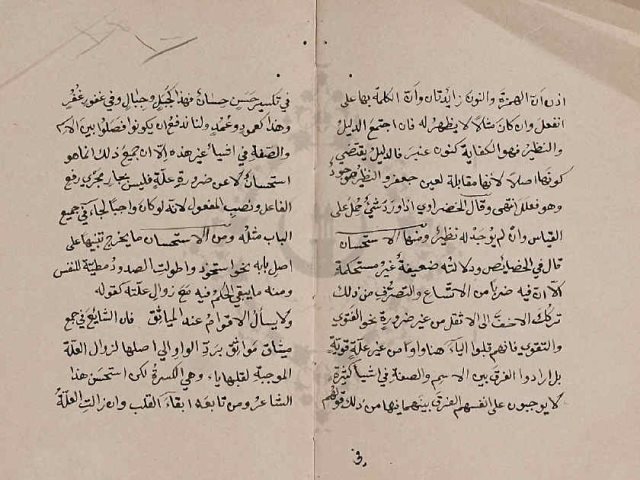 اذن ان الهمزة والنون زايدتان وان الكلمة بها على
انفعل وان كان مثالا لا يظهر له فان اجتمع الدليل
والنظير فهو الكفاية كنون عنبر فالدليل يقتضي
كونها اصلا لانها مقابلة لعين جعفر والنظير موجود
وهو فعلل انتهى وقال الخضراوي اذا ورد شئ حمل على
القياس وان لم يوجد له نظير ومنها الاستحسان
قال في الخصايص ودلالته ضعيفة غير مستحكمة
الا ان فيه ضربا من الاتساع والتصرف من ذلك
تركك الاخف الى الاثقل من غير ضرورة نحو الفتوى
والتقوى فانهم قلبوا الياء هنا واوا من غير علة قوية
بل ارادوا الفرق بين الاسم والصفة في اشيا كثيرة
لا يوجبون على انفسهم الفرق بينهما فيها من ذلك قولهم
في
في تكسير حسن حسان فهذا كجبل وجبال وفي غفور غفر
وهذا كعمود وعمد ولنا ندفع ان يكونوا فصلوا بين الاسم
والصفة في اشيا غير هذه الا ان جميع ذلك انما هو
استحسان لا عن ضرورة علة فليس بجار مجرى رفع
الفاعل ونصب المفعول لانه لو كان واجبا لجاء في جميع
الباب مثله ومن الاستحسان ما يخرج تنبيها على
اصل بابه نحو استحوذ واطولت الصدود مطيبة للنفس
ومنه ما يبقى الحكم فيه مع زوال علته كقوله
ولا يسأل الاقوام عقد المياثق فان الشايع في جمع
ميثاق مواثق برد الواو الى اصلها لزوال العلة
الموجبة لقلبها ياء وهي الكسرة لكن استحسن هذا
الشاعر ومن تابعه ابقاء القلب وان زالت العلة